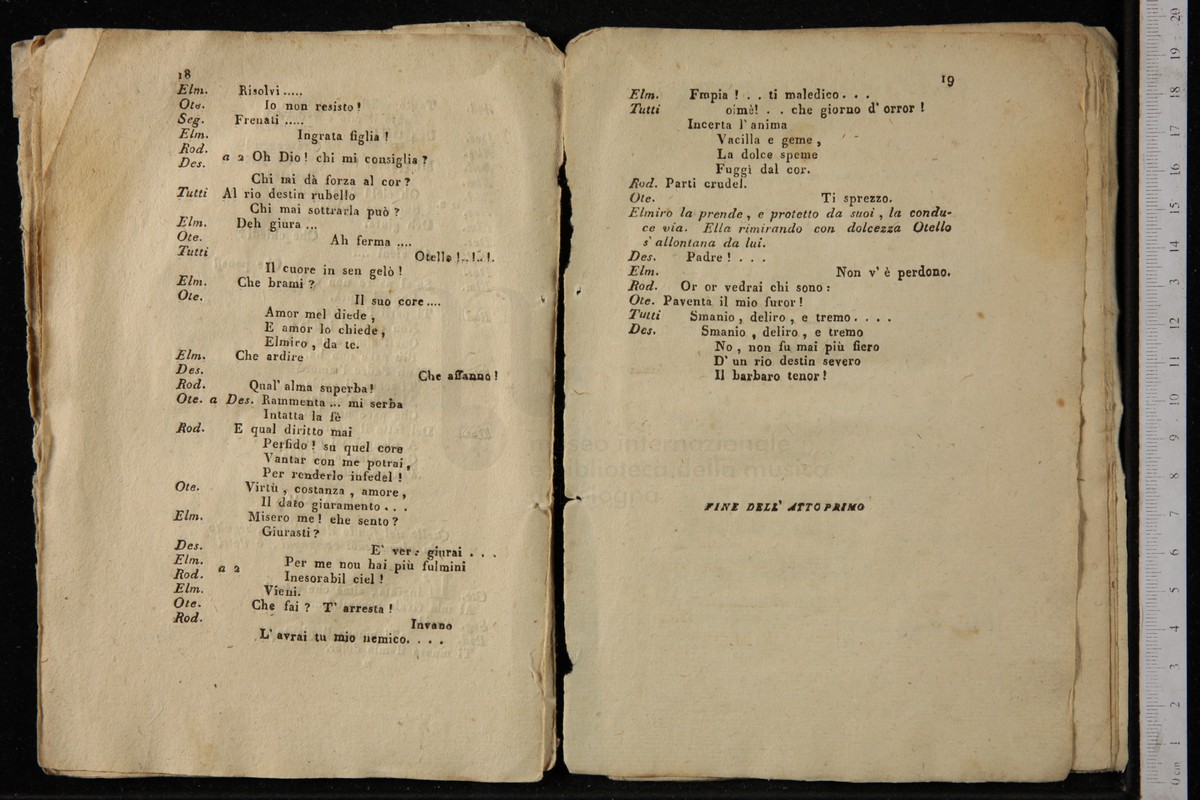 18
Elm. Risolvi.....
Ote. Io non resisto!
Seg. Frenati .....
Elm. Ingrata figlia!
Rod.
Des. a 2 Oh Dio! chi mi consiglia?
Chi mi dà forza al cor?
Tutti Al rio destin rubello
Chi mai sottrarla può?
Elm. Deh giura ...
Ote. Ah ferma ....
Tutti Otello!..!..!.
Il cuore in sen gelò!
Elm. Che brami?
Ote. Il suo core....
Amor mel diede,
E amor lo chiede,
Elmiro, da te.
Elm. Che ardire
Des. Che affanno!
Rod. Qual' alma superba!
Ote. a Des. Rammenta ... mi serba
Intatta la fè
Rod. E qual diritto mai
Perfido! su quel core
Vantar con me potrai,
Per renderlo infedel!
Ote. Virtù, costanza, amore,
Il dato giuramento...
Elm. Misero me! che sento?
Giurasti?
Des. E' ver: giurai...
Elm.
Rod. a 2 Per me non hai più fulmini
Inesorabil ciel!
Elm. Vieni.
Ote. Che fai? T' arresta!
Rod. Invano
L' avrai tu mio nemico....
19
Elm. Empia!.. ti maledico...
Tutti oimè!.. che giorno d' orror!
Incerta l' anima
Vacilla e geme,
La dolce speme
Fuggì dal cor.
Rod. Parti crudel.
Ote. Ti sprezzo.
Elmiro la prende, e protetto da suoi, la condu-
ce via. Ella rimirando con dolcezza Otello
s' allontana da lui.
Des. Padre!...
Elm. Non v' è perdono.
Rod. Or or vedrai chi sono:
Ote. Paventa il mio furor!
Tutti Smanio, deliro, e tremo....
Des. Smanio, deliro, e tremo
No, non fu mai più fiero
D' un rio destin severo
Il barbaro tenor!
museo internazionale
e biblioteca della musica
di bologna
FINE DELL' ATTO PRIMO
0 cm 1 2 3 4 5 6 7 8 9 10 11 12 13 14 15 16 17 18 19 20